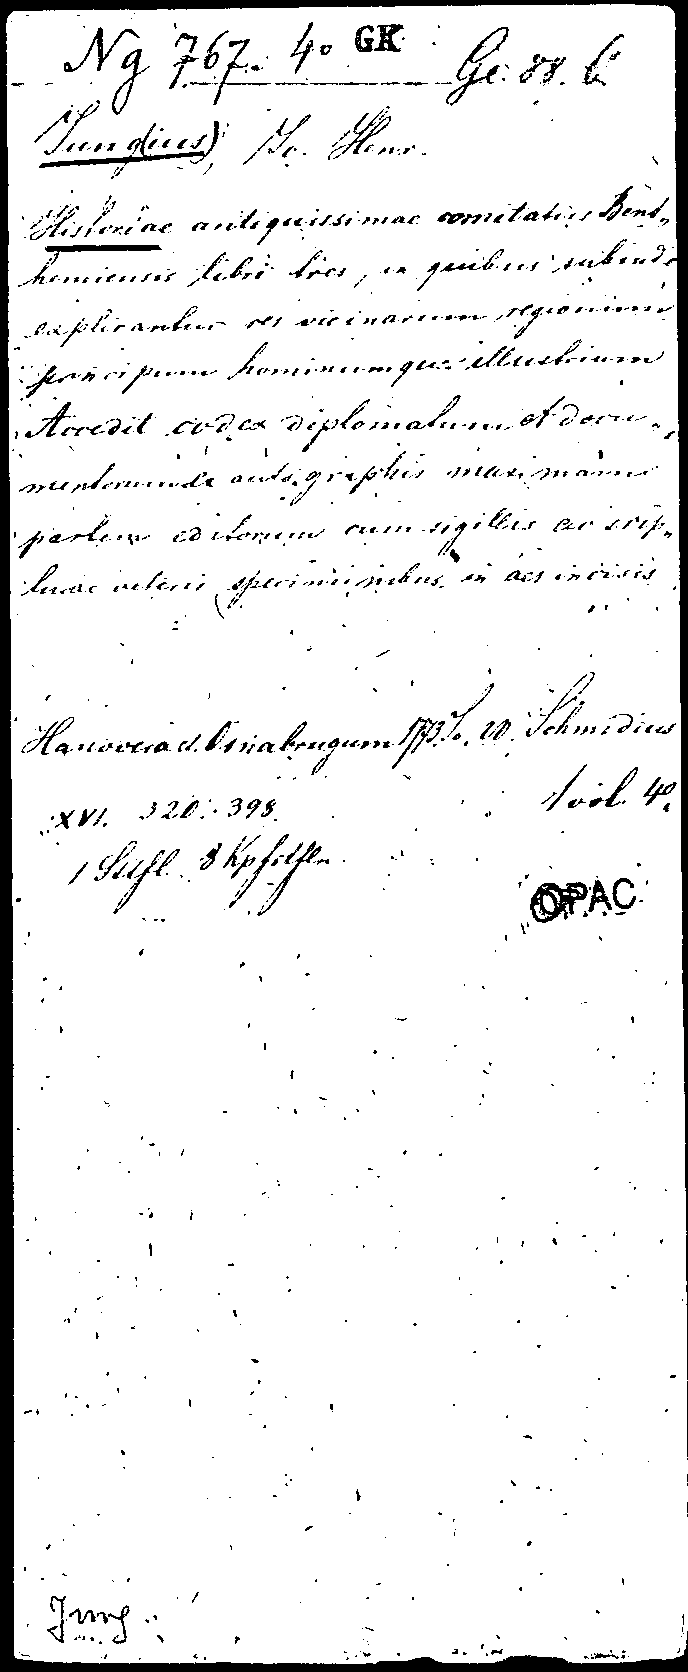 Ng 767. 4° GK Ge. 88. b
Jung(ius), Jo. Henr.
Historiae antiquissimae comitatus Bent-
hemiensis libri tres, in quibus subinde
explicantur res vicinarum regionum
principum hominumque illustrium
Accedit codex diplomatum et docu-
mentorum de autographis maximam
partem editorum cum sigillis ac scrip-
turae veteris speciminibus in aes incisis
Hanovera et Osnabrugum 1773. Jo. W. Schmidius
1 vol. 4°.
XVI. 320. 398.
1 Sttfl. 8 Kpfrtfln.
OPAC
Jung